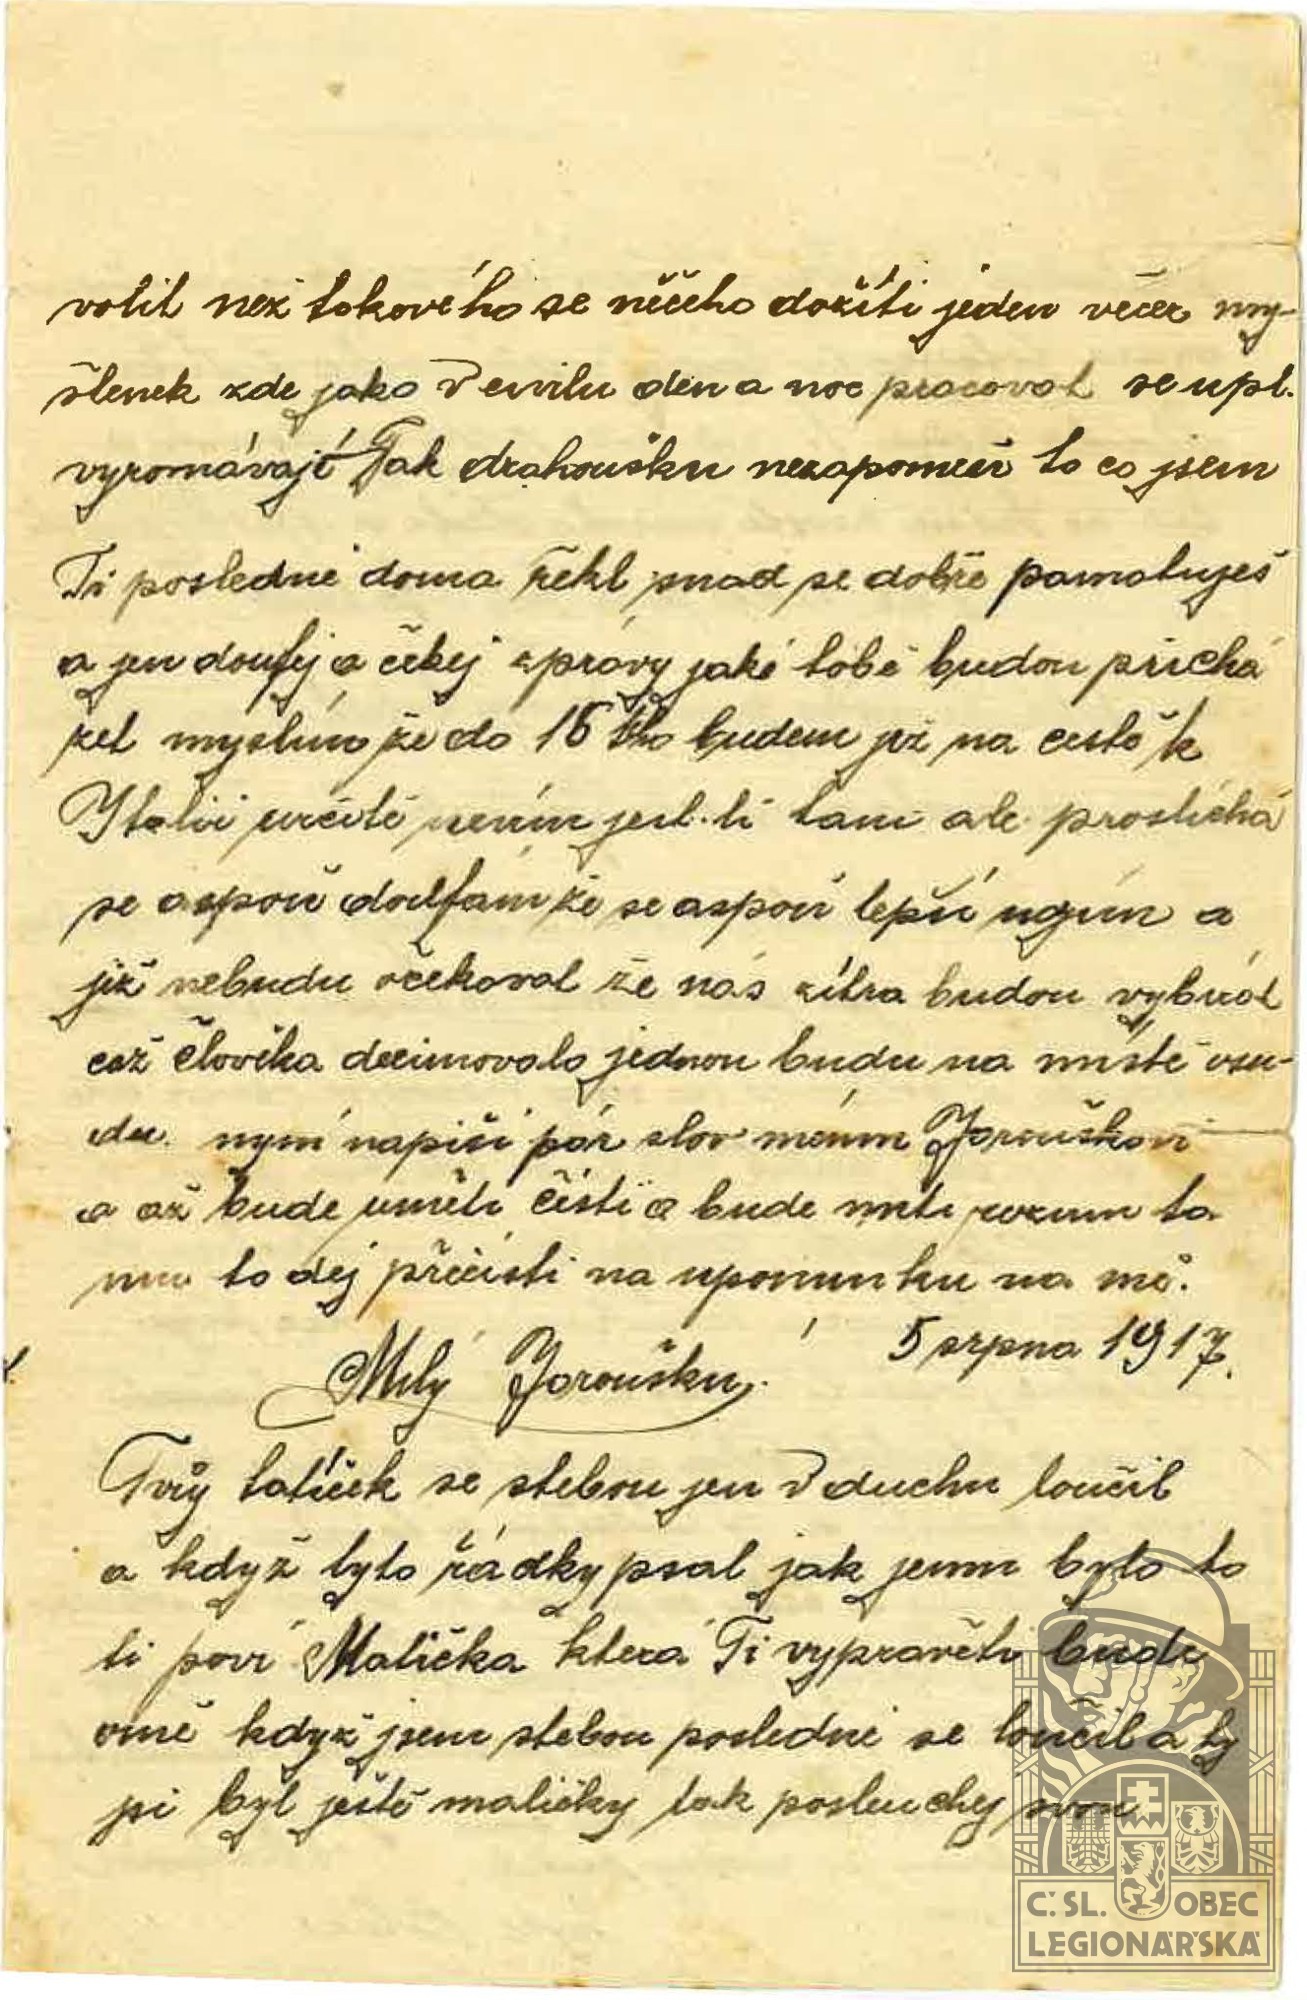 volit než takového se něčeho dožíti jeden večer my-
šlenek zde jako v civilu den a noc pracoval se úpl.
vyromávají Tak drahoušku nezapomeň to co jsem
Ti posledně doma řekl snad se dobře pamatuješ
a jen doufej a čekej zprávy jaké tobě budou přichá
zet myslím že do 15tho budem již na cestě k
Italii určitě nevím jest-li tam ale proslíchá
se aspoň doufám že se aspoň lepší a
již nebudu očekovat že nás zítra budou vybírat
což člověka decimovalo jednou budu na místě osu-
du. nyní napíši pár slov mému Jarouškovi
a až bude uměti čísti a bude míti rozum ta
mu to dej přečísti na upomínku na mě.
5 srpna 1917.
Milý Jaroušku!
Tvůj tatíček se stebou jen v duchu loučil
a když tyto řádky psal jak jemu bylo to
ti poví Matička která Ti vypravěti bude
omě když jsem stebou posledně se loučil a ty
si byl ještě maličky tak poslouchej svou
Č. SL. OBEC
LEGIONÁŘSKÁ